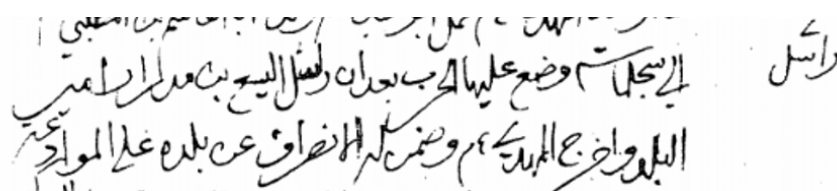 راسل
الى سجلماسة وضع عليها الحرب بعد ان راسل اليسع بن مدرار امير
البلد واخرج المهدي ع م وضمن له الانصراف عن بلده على الموادعة